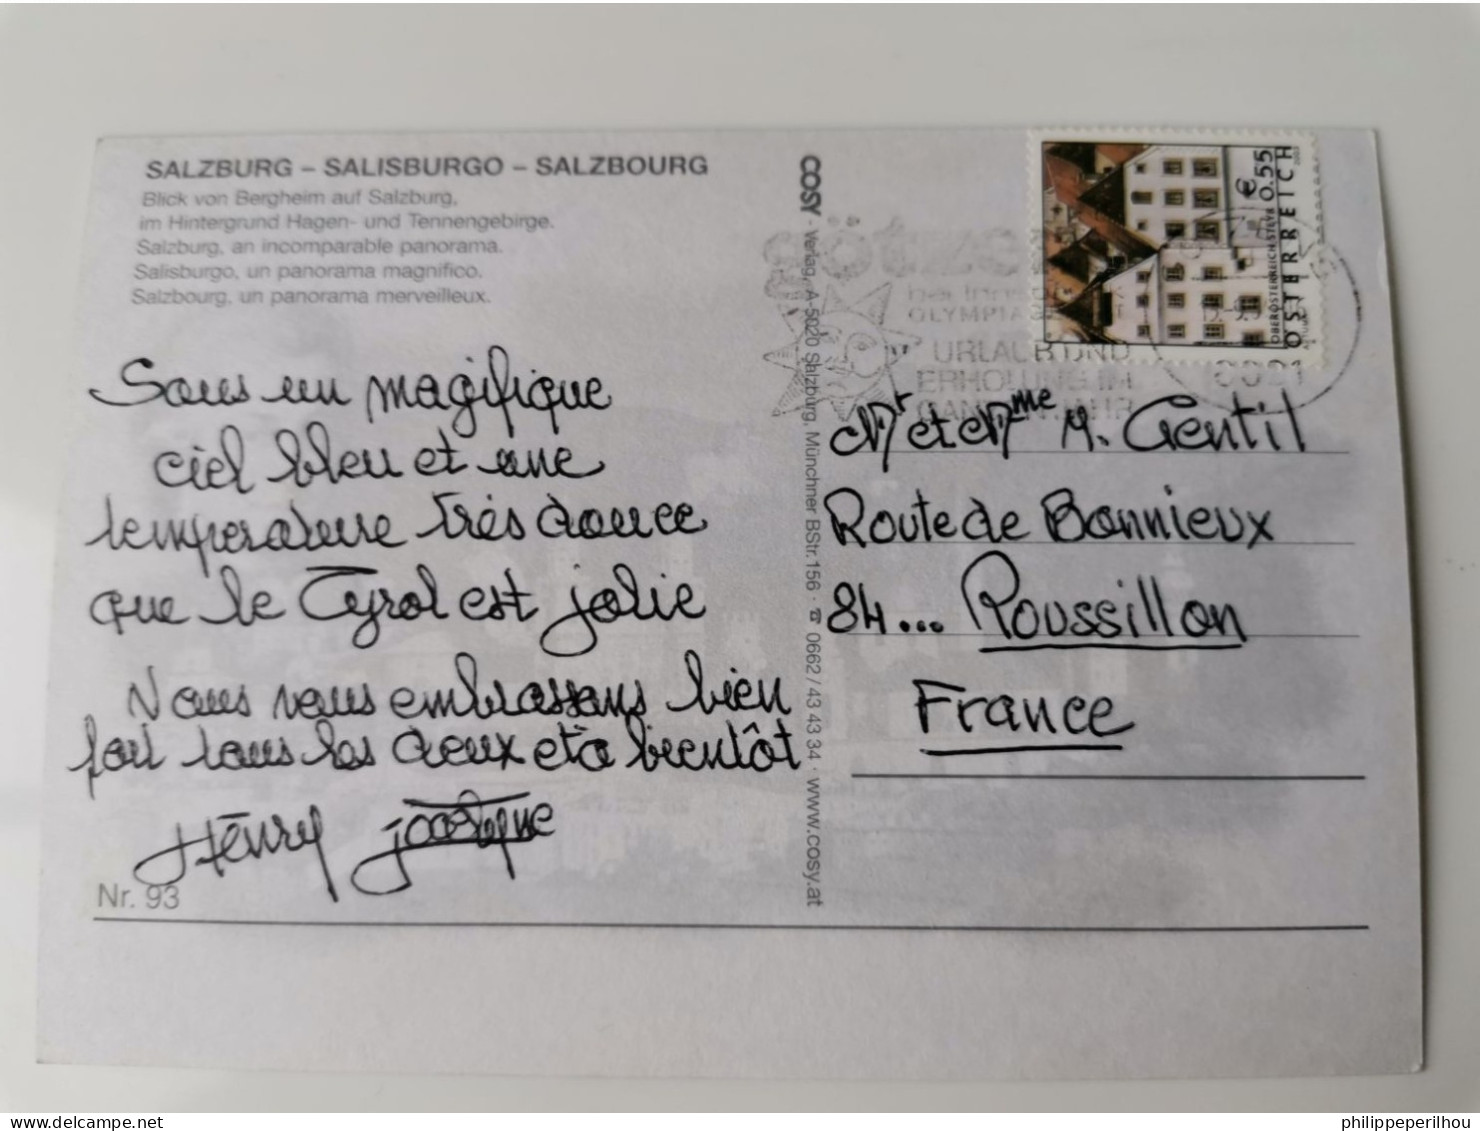 SALZBURG – SALISBURGO – SALZBOURG
Blick von Bergheim auf Salzburg,
im Hintergrund Hagen- und Tennengebirge.
Salzburg, an incomparable panorama.
Salisburgo, un panorama magnifico.
Salzbourg, un panorama merveilleux.
Sous un magifique
ciel bleu et une
temperature très douce
que le Tyrol est jolie
Nous vous embrassons bien
fort tous les deux et à bientôt
Hénry Jocelyne
Nr. 93
COSY - Verlag, A-5020 Salzburg, Münchner BStr.156 · ☎ 0662/43 43 34 · www.cosy.at
götze
OLYMPIA
URLAUB UND
ERHOLUNG IM
GANZEN JAHR
€ 0.55
OBERÖSTERREICH STEYR
ÖSTERREICH
Mr et Mme M. Gentil
Route de Bonnieux
84... Roussillon
France
philippeperilhou